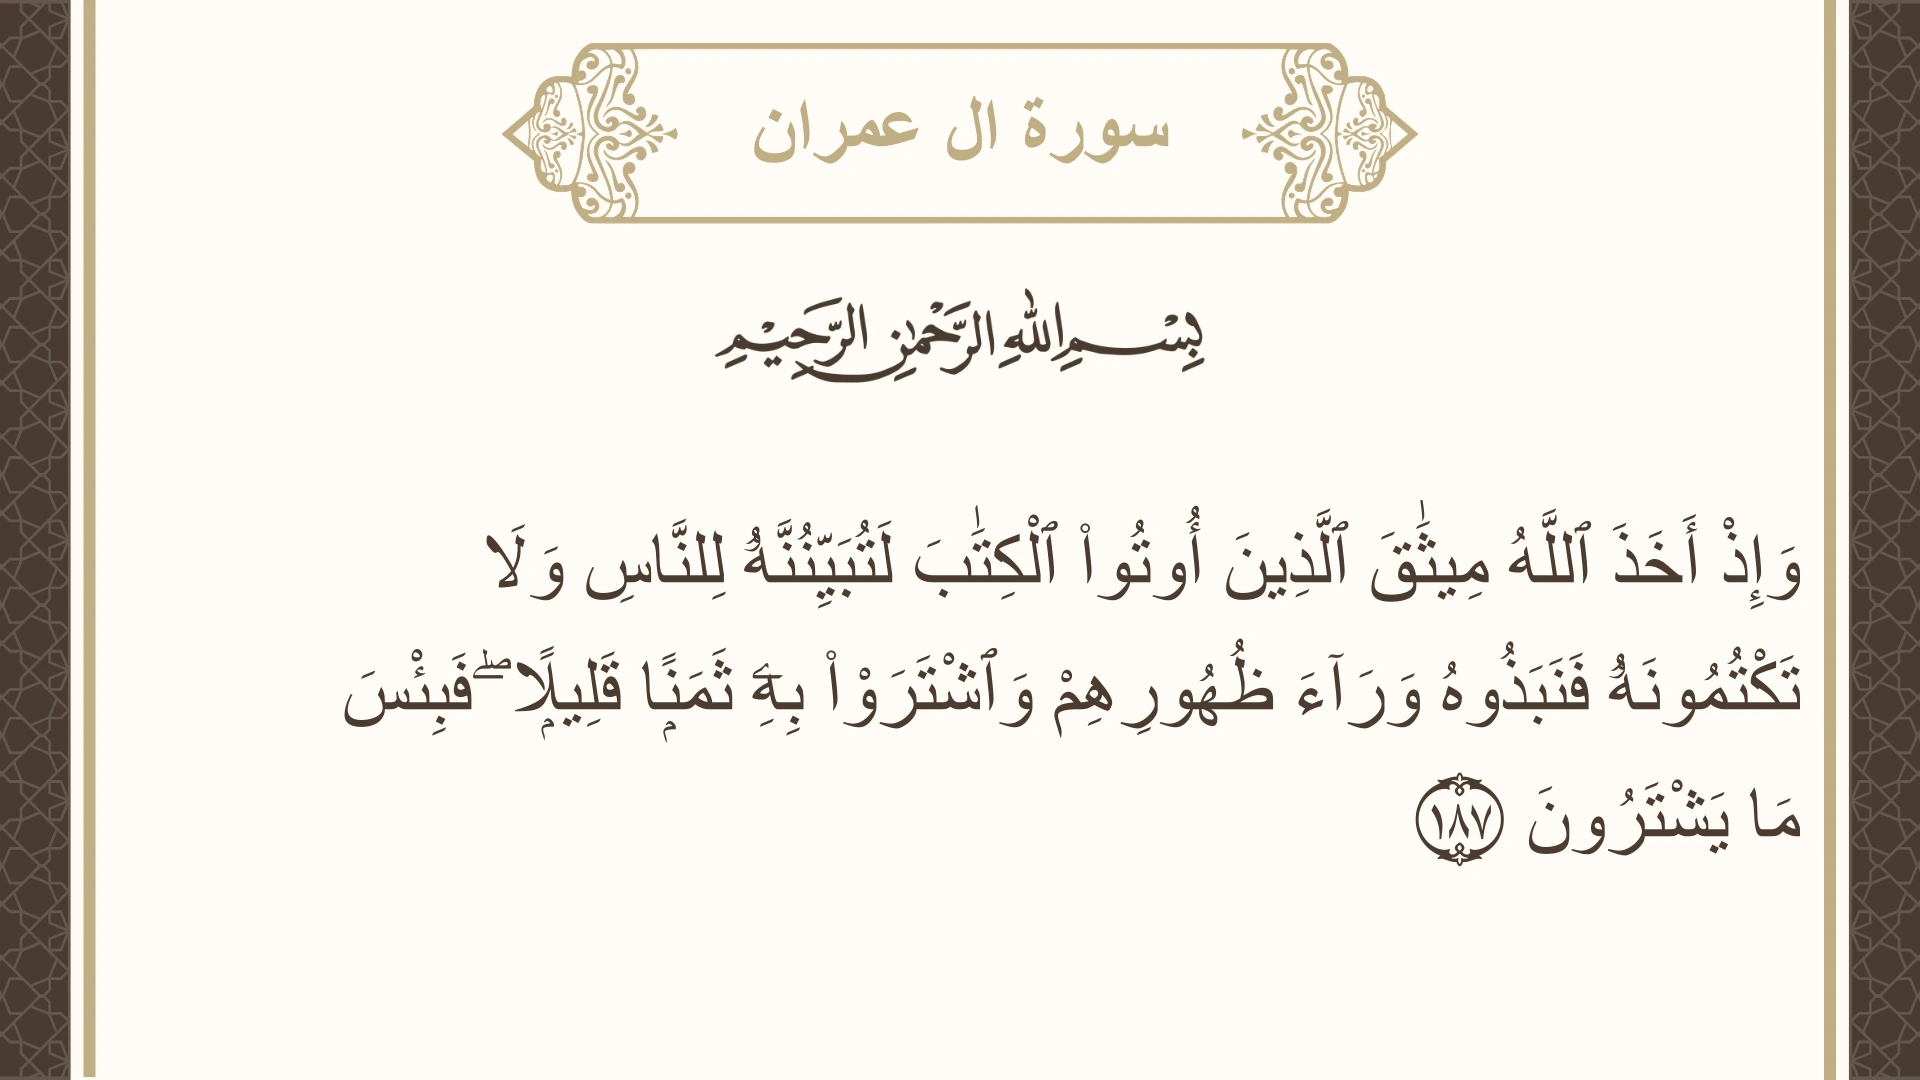 سورة ال عمران
بِسْمِ اللهِ الرَّحْمٰنِ الرَّحِيْمِ
وَإِذْ أَخَذَ ٱللَّهُ مِيثَٰقَ ٱلَّذِينَ أُوتُوا۟ ٱلْكِتَٰبَ لَتُبَيِّنُنَّهُۥ لِلنَّاسِ وَلَا
تَكْتُمُونَهُۥ فَنَبَذُوهُ وَرَآءَ ظُهُورِهِمْ وَٱشْتَرَوْا۟ بِهِۦ ثَمَنًۭا قَلِيلًۭا ۖ فَبِئْسَ
مَا يَشْتَرُونَ ١٨٧